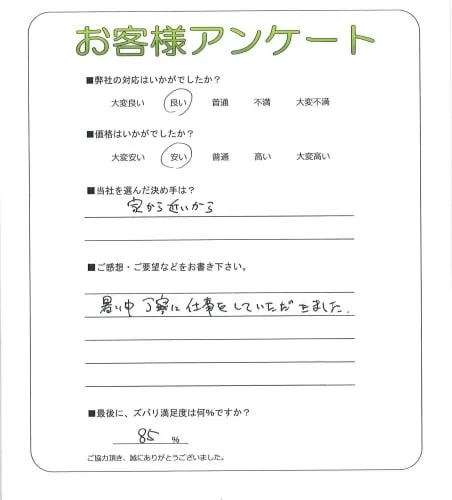 お客様アンケート
■弊社の対応はいかがでしたか?
大変良い 良い 普通 不満 大変不満
■価格はいかがでしたか?
大変安い 安い 普通 高い 大変高い
■当社を選んだ決め手は?
家から近いから
■ご感想・ご要望などをお書き下さい。
暑い中 丁寧に仕事をしていただきました.
■最後に、ズバリ満足度は何%ですか?
85 %
ご協力頂き、誠にありがとうございました。